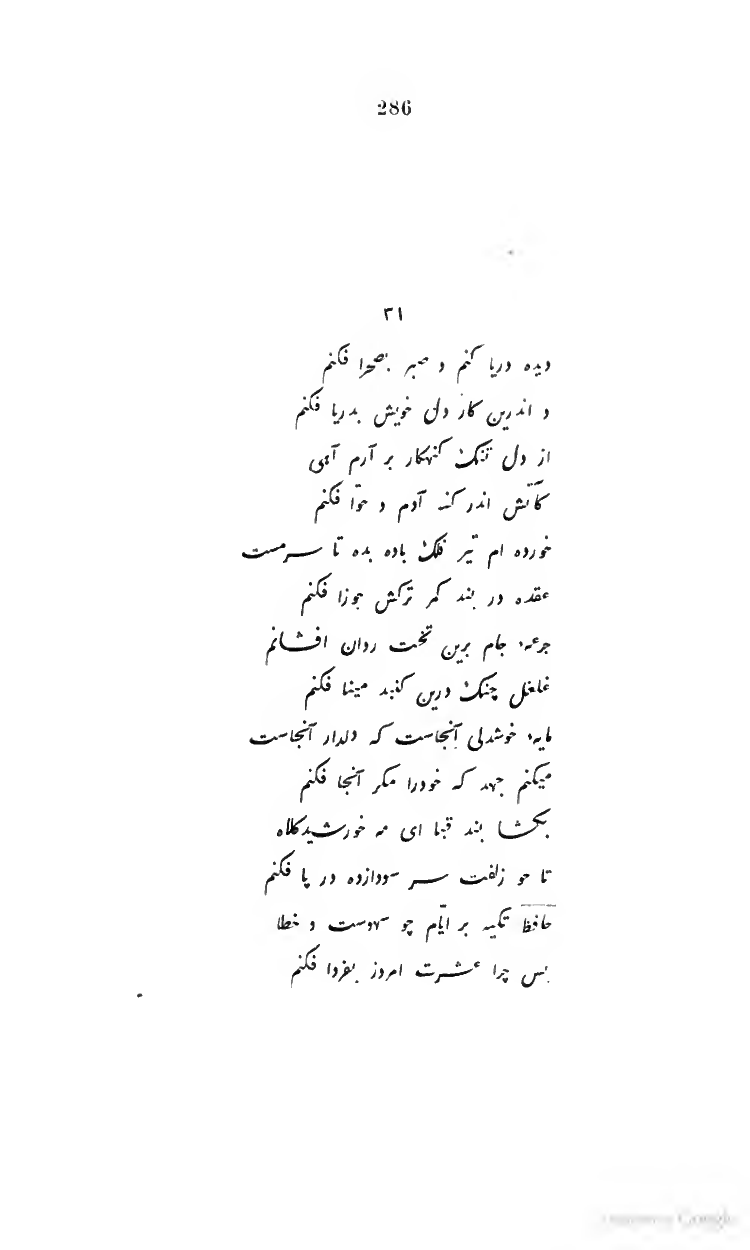 286
٣١
دیده دریا کنم و صبر بصحرا فکنم
و اندرین کار دل خویش بدریا فکنم
از دل تنک کنهکار بر آرم آهی
کآتش اندر کنه آدم و حوّا فکنم
خورده ام تیر فلک باده بده تا سرمست
عقده در بند کمر ترکش جوزا فکنم
جرعهٔ جام برین تخت روان افشانم
غلغل چنک درین کنبد مینا فکنم
مایهٔ خوشدلی آنجاست که دلدار آنجاست
میکنم جهد که خودرا مکر آنجا فکنم
بکشا بند قبا ای مه خورشیدکلاه
تا چو زلفت سر سودازده در پا فکنم
حافظ تکیه بر ایّام چو سهوست و خطا
پس چرا عشرت امروز بفردا فکنم
Google